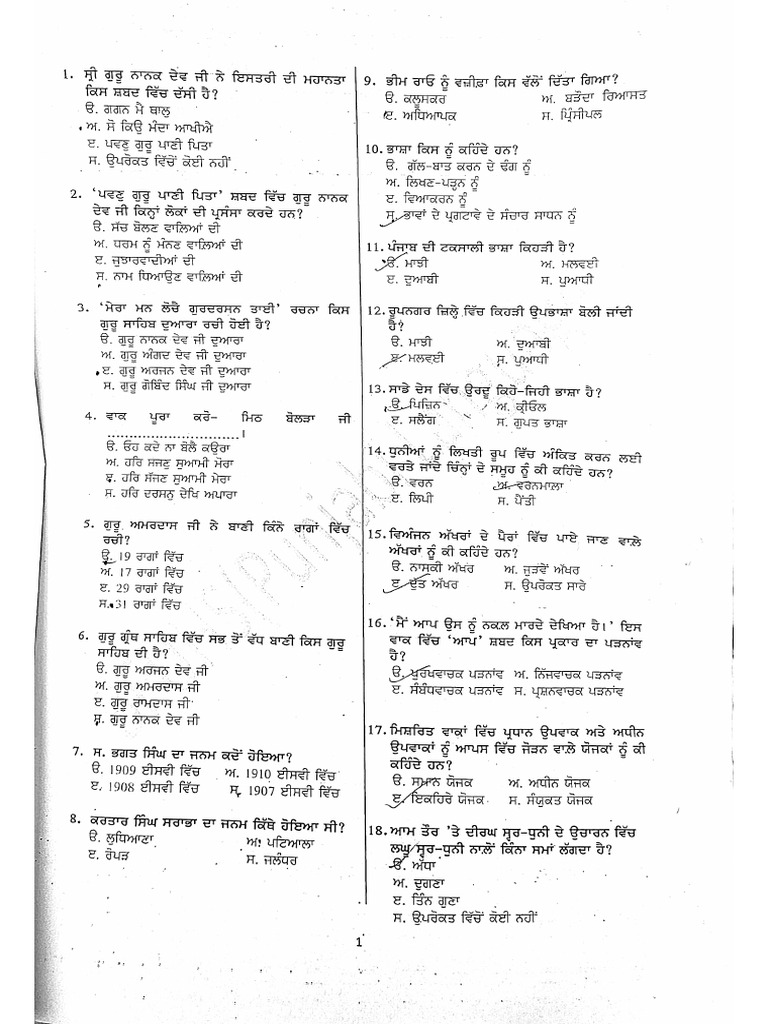 1. ਸ੍ਰੀ ਗੁਰੂ ਨਾਨਕ ਦੇਵ ਜੀ ਨੇ ਇਸਤਰੀ ਦੀ ਮਹਾਨਤਾ
ਕਿਸ ਸ਼ਬਦ ਵਿੱਚ ਦੱਸੀ ਹੈ?
ੳ. ਗਗਨ ਮੈ ਥਾਲੁ
ਅ. ਸੋ ਕਿਉ ਮੰਦਾ ਆਖੀਐ
ੲ. ਪਵਣੁ ਗੁਰੂ ਪਾਣੀ ਪਿਤਾ
ਸ. ਉਪਰੋਕਤ ਵਿੱਚੋਂ ਕੋਈ ਨਹੀਂ
2. 'ਪਵਣੁ ਗੁਰੂ ਪਾਣੀ ਪਿਤਾ' ਸ਼ਬਦ ਵਿੱਚ ਗੁਰੂ ਨਾਨਕ
ਦੇਵ ਜੀ ਕਿਨ੍ਹਾਂ ਲੋਕਾਂ ਦੀ ਪ੍ਰਸੰਸਾ ਕਰਦੇ ਹਨ?
ੳ. ਸੱਚ ਬੋਲਣ ਵਾਲਿਆਂ ਦੀ
ਅ. ਧਰਮ ਨੂੰ ਮੰਨਣ ਵਾਲਿਆਂ ਦੀ
ੲ. ਜੁਝਾਰਵਾਦੀਆਂ ਦੀ
ਸ. ਨਾਮ ਧਿਆਉਣ ਵਾਲਿਆਂ ਦੀ
3. 'ਮੇਰਾ ਮਨ ਲੋਚੈ ਗੁਰਦਰਸਨ ਤਾਈ' ਰਚਨਾ ਕਿਸ
ਗੁਰੂ ਸਾਹਿਬ ਦੁਆਰਾ ਰਚੀ ਹੋਈ ਹੈ?
ੳ. ਗੁਰੂ ਨਾਨਕ ਦੇਵ ਜੀ ਦੁਆਰਾ
ਅ. ਗੁਰੂ ਅੰਗਦ ਦੇਵ ਜੀ ਦੁਆਰਾ
ੲ. ਗੁਰੂ ਅਰਜਨ ਦੇਵ ਜੀ ਦੁਆਰਾ
ਸ. ਗੁਰੂ ਗੋਬਿੰਦ ਸਿੰਘ ਜੀ ਦੁਆਰਾ
4. ਵਾਕ ਪੂਰਾ ਕਰੋ- ਮਿਠ ਬੋਲੜਾ ਜੀ
..............................।
ੳ. ਓਹ ਕਦੇ ਨਾ ਬੋਲੈ ਕਉਰਾ
ਅ. ਹਰਿ ਸਜਣੁ ਸੁਆਮੀ ਮੋਰਾ
ੲ. ਹਰਿ ਸੱਜਣ ਸੁਆਮੀ ਮੇਰਾ
ਸ. ਹਰਿ ਦਰਸਨੁ ਦੇਖਿ ਅਪਾਰਾ
5. ਗੁਰੂ ਅਮਰਦਾਸ ਜੀ ਨੇ ਬਾਣੀ ਕਿੰਨੇ ਰਾਗਾਂ ਵਿੱਚ
ਰਚੀ?
ੳ. 19 ਰਾਗਾਂ ਵਿੱਚ
ਅ. 17 ਰਾਗਾਂ ਵਿੱਚ
ੲ. 29 ਰਾਗਾਂ ਵਿੱਚ
ਸ. 31 ਰਾਗਾਂ ਵਿੱਚ
6. ਗੁਰੂ ਗ੍ਰੰਥ ਸਾਹਿਬ ਵਿੱਚ ਸਭ ਤੋਂ ਵੱਧ ਬਾਣੀ ਕਿਸ ਗੁਰੂ
ਸਾਹਿਬ ਦੀ ਹੈ?
ੳ. ਗੁਰੂ ਅਰਜਨ ਦੇਵ ਜੀ
ਅ. ਗੁਰੂ ਅਮਰਦਾਸ ਜੀ
ੲ. ਗੁਰੂ ਰਾਮਦਾਸ ਜੀ
ਸ. ਗੁਰੂ ਨਾਨਕ ਦੇਵ ਜੀ
7. ਸ. ਭਗਤ ਸਿੰਘ ਦਾ ਜਨਮ ਕਦੋਂ ਹੋਇਆ?
ੳ. 1909 ਈਸਵੀ ਵਿੱਚ ਅ. 1910 ਈਸਵੀ ਵਿੱਚ
ੲ. 1908 ਈਸਵੀ ਵਿੱਚ ਸ. 1907 ਈਸਵੀ ਵਿੱਚ
8. ਕਰਤਾਰ ਸਿੰਘ ਸਰਾਭਾ ਦਾ ਜਨਮ ਕਿੱਥੇ ਹੋਇਆ ਸੀ?
ੳ. ਲੁਧਿਆਣਾ ਅ. ਪਟਿਆਲਾ
ੲ. ਰੋਪੜ ਸ. ਜਲੰਧਰ
9. ਭੀਮ ਰਾਓ ਨੂੰ ਵਜ਼ੀਫ਼ਾ ਕਿਸ ਵੱਲੋਂ ਦਿੱਤਾ ਗਿਆ?
ੳ. ਕਲੂਸਕਰ ਅ. ਬੜੌਦਾ ਰਿਆਸਤ
ੲ. ਅਧਿਆਪਕ ਸ. ਪ੍ਰਿੰਸੀਪਲ
10. ਭਾਸ਼ਾ ਕਿਸ ਨੂੰ ਕਹਿੰਦੇ ਹਨ?
ੳ. ਗੱਲ-ਬਾਤ ਕਰਨ ਦੇ ਢੰਗ ਨੂੰ
ਅ. ਲਿਖਣ-ਪੜ੍ਹਨ ਨੂੰ
ੲ. ਵਿਆਕਰਨ ਨੂੰ
ਸ. ਭਾਵਾਂ ਦੇ ਪ੍ਰਗਟਾਵੇ ਦੇ ਸੰਚਾਰ ਸਾਧਨ ਨੂੰ
11. ਪੰਜਾਬ ਦੀ ਟਕਸਾਲੀ ਭਾਸ਼ਾ ਕਿਹੜੀ ਹੈ?
ੳ. ਮਾਝੀ ਅ. ਮਲਵਈ
ੲ. ਦੁਆਬੀ ਸ. ਪੁਆਧੀ
12. ਰੂਪਨਗਰ ਜ਼ਿਲ੍ਹੇ ਵਿੱਚ ਕਿਹੜੀ ਉਪਭਾਸ਼ਾ ਬੋਲੀ ਜਾਂਦੀ
ਹੈ?
ੳ. ਮਾਝੀ ਅ. ਦੁਆਬੀ
ੲ. ਮਲਵਈ ਸ. ਪੁਆਧੀ
13. ਸਾਡੇ ਦੇਸ ਵਿੱਚ ਉਰਦੂ ਕਿਹੋ-ਜਿਹੀ ਭਾਸ਼ਾ ਹੈ?
ੳ. ਪਿਜ਼ਿਨ ਅ. ਕ੍ਰੀਓਲ
ੲ. ਸਲੈਂਗ ਸ. ਗੁਪਤ ਭਾਸ਼ਾ
14. ਧੁਨੀਆਂ ਨੂੰ ਲਿਖਤੀ ਰੂਪ ਵਿੱਚ ਅੰਕਿਤ ਕਰਨ ਲਈ
ਵਰਤੇ ਜਾਂਦੇ ਚਿੰਨ੍ਹਾਂ ਦੇ ਸਮੂਹ ਨੂੰ ਕੀ ਕਹਿੰਦੇ ਹਨ?
ੳ. ਵਰਨ ਅ. ਵਰਨਮਾਲਾ
ੲ. ਲਿਪੀ ਸ. ਪੈਂਤੀ
15. ਵਿਅੰਜਨ ਅੱਖਰਾਂ ਦੇ ਪੈਰਾਂ ਵਿੱਚ ਪਾਏ ਜਾਣ ਵਾਲੇ
ਅੱਖਰਾਂ ਨੂੰ ਕੀ ਕਹਿੰਦੇ ਹਨ?
ੳ. ਨਾਸਕੀ ਅੱਖਰ ਅ. ਜੁੜਵੇਂ ਅੱਖਰ
ੲ. ਦੁੱਤ ਅੱਖਰ ਸ. ਉਪਰੋਕਤ ਸਾਰੇ
16. 'ਮੈਂ ਆਪ ਉਸ ਨੂੰ ਨਕਲ ਮਾਰਦੇ ਦੇਖਿਆ ਹੈ।' ਇਸ
ਵਾਕ ਵਿੱਚ 'ਆਪ' ਸ਼ਬਦ ਕਿਸ ਪ੍ਰਕਾਰ ਦਾ ਪੜਨਾਂਵ
ਹੈ?
ੳ. ਪੁਰਖਵਾਚਕ ਪੜਨਾਂਵ ਅ. ਨਿੱਜਵਾਚਕ ਪੜਨਾਂਵ
ੲ. ਸੰਬੰਧਵਾਚਕ ਪੜਨਾਂਵ ਸ. ਪ੍ਰਸ਼ਨਵਾਚਕ ਪੜਨਾਂਵ
17. ਮਿਸ਼ਰਿਤ ਵਾਕਾਂ ਵਿੱਚ ਪ੍ਰਧਾਨ ਉਪਵਾਕ ਅਤੇ ਅਧੀਨ
ਉਪਵਾਕਾਂ ਨੂੰ ਆਪਸ ਵਿੱਚ ਜੋੜਨ ਵਾਲੇ ਯੋਜਕਾਂ ਨੂੰ ਕੀ
ਕਹਿੰਦੇ ਹਨ?
ੳ. ਸਮਾਨ ਯੋਜਕ ਅ. ਅਧੀਨ ਯੋਜਕ
ੲ. ਇਕਹਿਰੇ ਯੋਜਕ ਸ. ਸੰਯੁਕਤ ਯੋਜਕ
18. ਆਮ ਤੌਰ 'ਤੇ ਦੀਰਘ ਸ੍ਵਰ-ਧੁਨੀ ਦੇ ਉਚਾਰਨ ਵਿੱਚ
ਲਘੂ ਸ੍ਵਰ-ਧੁਨੀ ਨਾਲੋਂ ਕਿੰਨਾ ਸਮਾਂ ਲੱਗਦਾ ਹੈ?
ੳ. ਅੱਧਾ
ਅ. ਦੁਗਣਾ
ੲ. ਤਿੰਨ ਗੁਣਾ
ਸ. ਉਪਰੋਕਤ ਵਿੱਚੋਂ ਕੋਈ ਨਹੀਂ
1